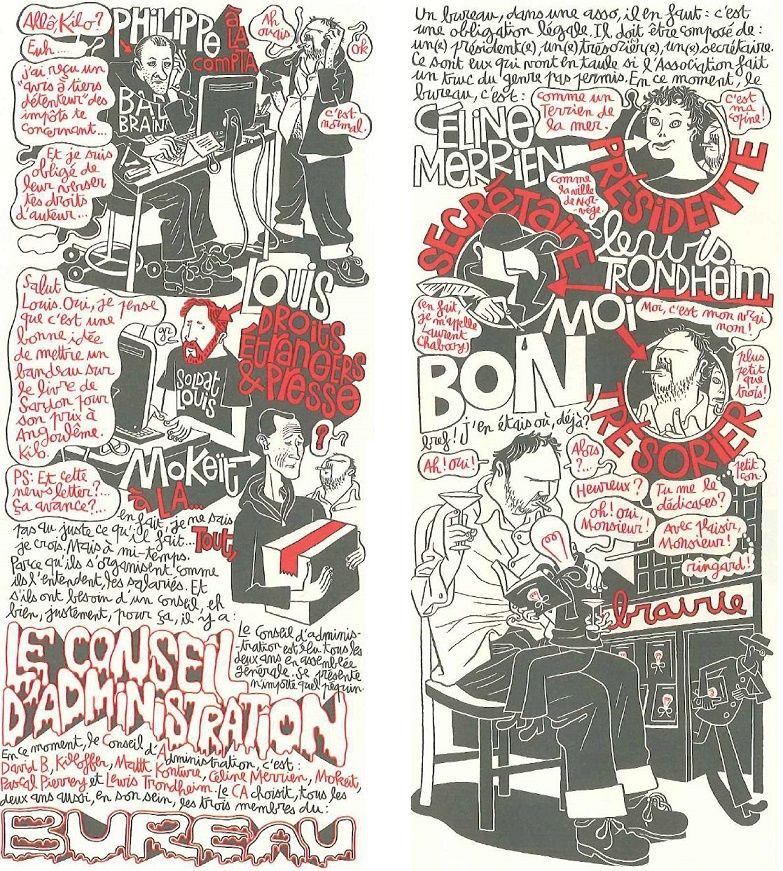 Allô, Kilo?
Euh...
j'ai reçu un
"avis à tiers
détenteur" des
impôts te
concernant...
Et je suis
obligé de
leur verser
tes droits
d'auteur...
PHILIPPE
À LA
COMPTA
BAD
BRAIN
Ah
ouais
OK
c'est
normal.
Salut
Louis. Oui, je pense
que c'est une
bonne idée
de mettre un
bandeau sur
le livre de
Sardon pour
son prix à
Angoulême.
Kilo.
PS: Et cette
newsletter?...
Ça avance?...
LOUIS
DROITS
ETRANGERS
& PRESSE
SOLDAT
LOUIS
MOKEÏT
À LA...
TOUT,
?
en fait, je ne sais
pas au juste ce qu'il fait...
je crois. Mais à mi-temps.
Parce qu'ils s'organisent comme
ils l'entendent, les salariés. Et
s'ils ont besoin d'un conseil, eh
bien, justement, pour ça, il y a:
LE CONSEIL
D'ADMINISTRATION
Le Conseil d'adminis-
tration est élu tous les
deux ans en assemblée
générale. Se présente
n'importe quel péquin
En ce moment, le Conseil d'Administration, c'est:
David B, Killoffer, Matt Konture, Céline Merrien, Mokeït,
Pascal Pierrey et Lewis Trondheim. Le CA choisit, tous les
deux ans aussi, en son sein, les trois membres du:
BUREAU
Un bureau, dans une asso, il en faut: c'est
une obligation légale. Il doit être composé de:
un(e) président(e), un(e) trésorier(e), un(e) secrétaire.
Ce sont eux qui vont en taule si l'Association fait
un truc du genre pas permis. En ce moment, le
bureau, c'est:
comme un
Terrien de
la mer.
C'est
ma
copine!
CÉLINE
MERRIEN
PRÉSIDENTE
comme
la ville
de Nor-
vège.
SECRÉTAIRE
lewis
TRONDHEIM
(en fait,
je m'appelle
Laurent
Chabosy)
MOI
Moi, c'est mon vrai
nom!
plus
petit que
trois!
TRÉSORIER
BON,
bref! J'en étais où, déjà?
Ah! oui!
Alors
?..
Heureux?
oh! oui,
Monsieur!
Tu me la
dédicaces?
petit
con.
Avec plaisir,
Monsieur!
ringard!
brairie